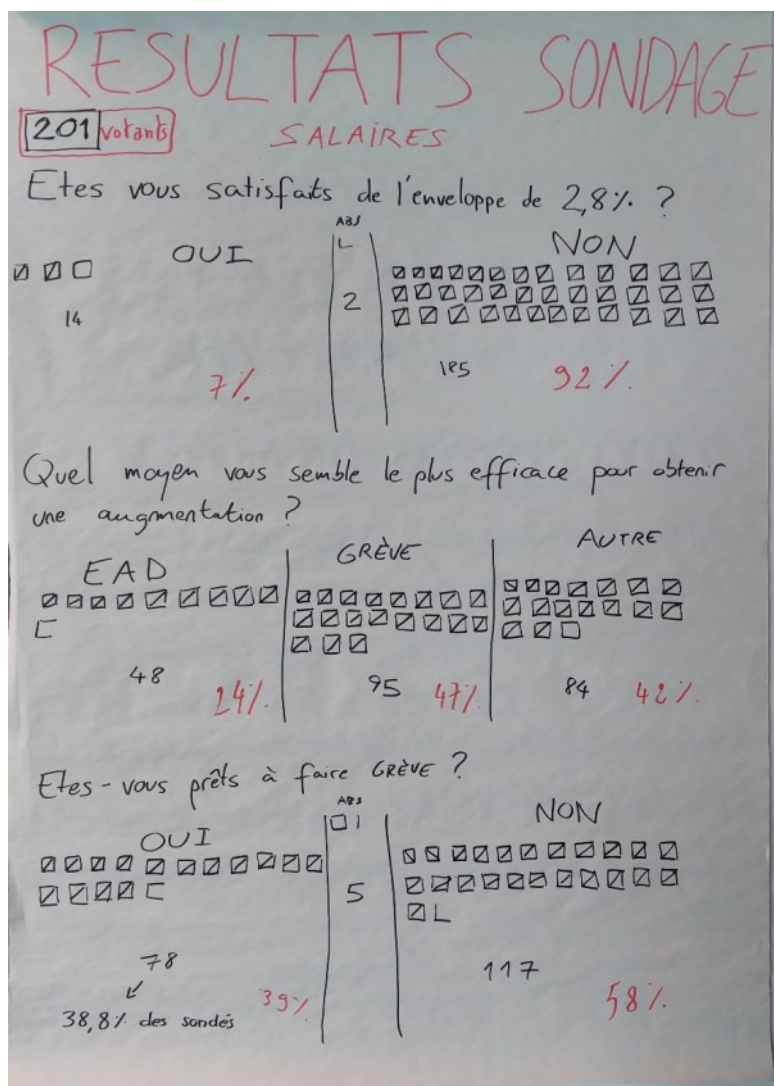 RESULTATS SONDAGE
201 votants
SALAIRES
Etes vous satisfaits de l'enveloppe de 2,8% ?
OUI
ABS
NON
14
2
185
7%
92%
Quel moyen vous semble le plus efficace pour obtenir
une augmentation ?
EAD
GRÈVE
AUTRE
48
24%
95
47%
84
42%
Etes-vous prêts à faire GRÈVE ?
OUI
ABS
NON
78
5
117
38,8% des sondés
39%
58%